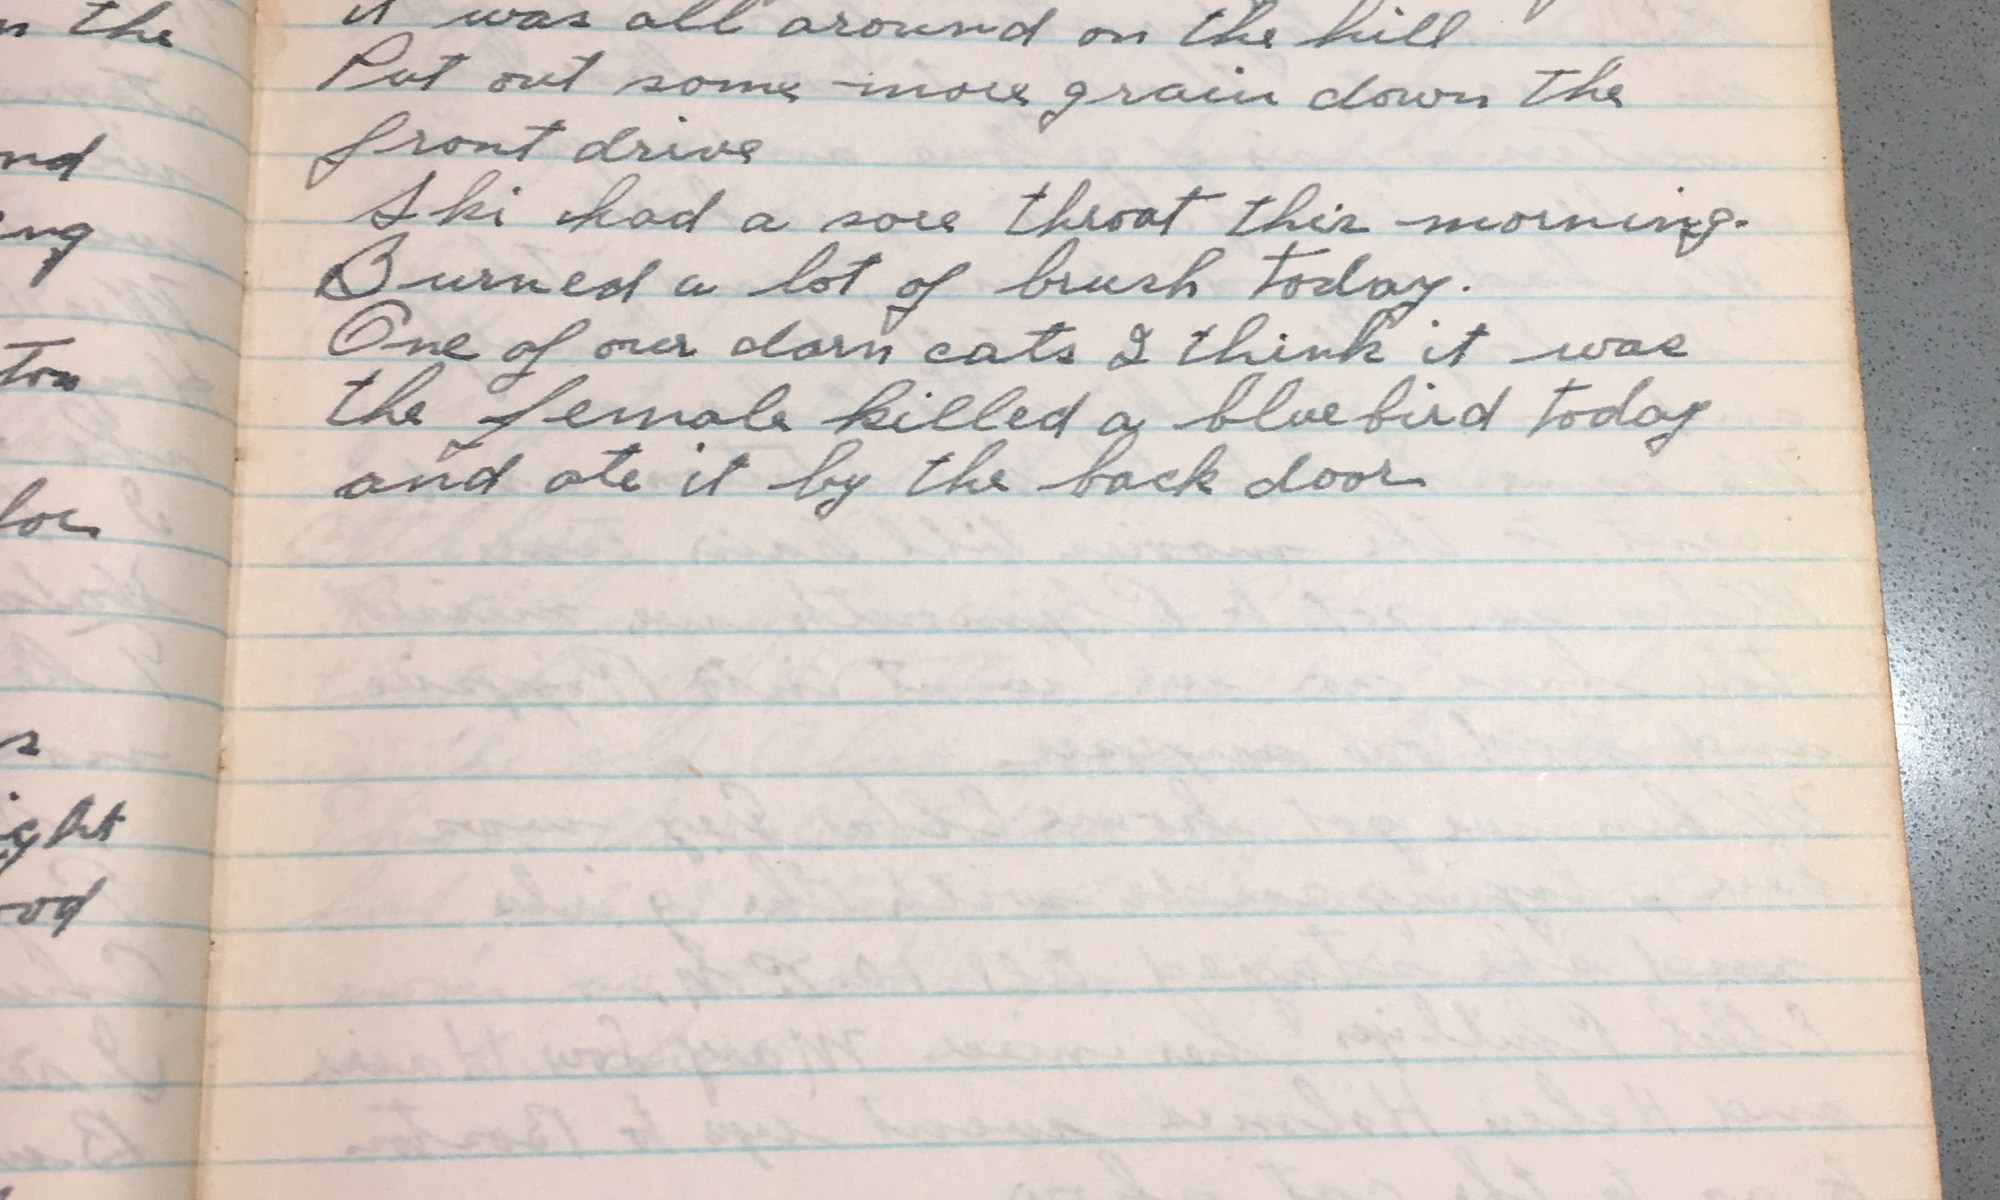 n the
nd
ing
ton
for
s
ight
ood
it was all around on the hill
Put out some more grain down the
front drive
Ski had a sore throat this morning.
Burned a lot of brush today.
One of our darn cats I think it was
the female killed a bluebird today
and ate it by the back door